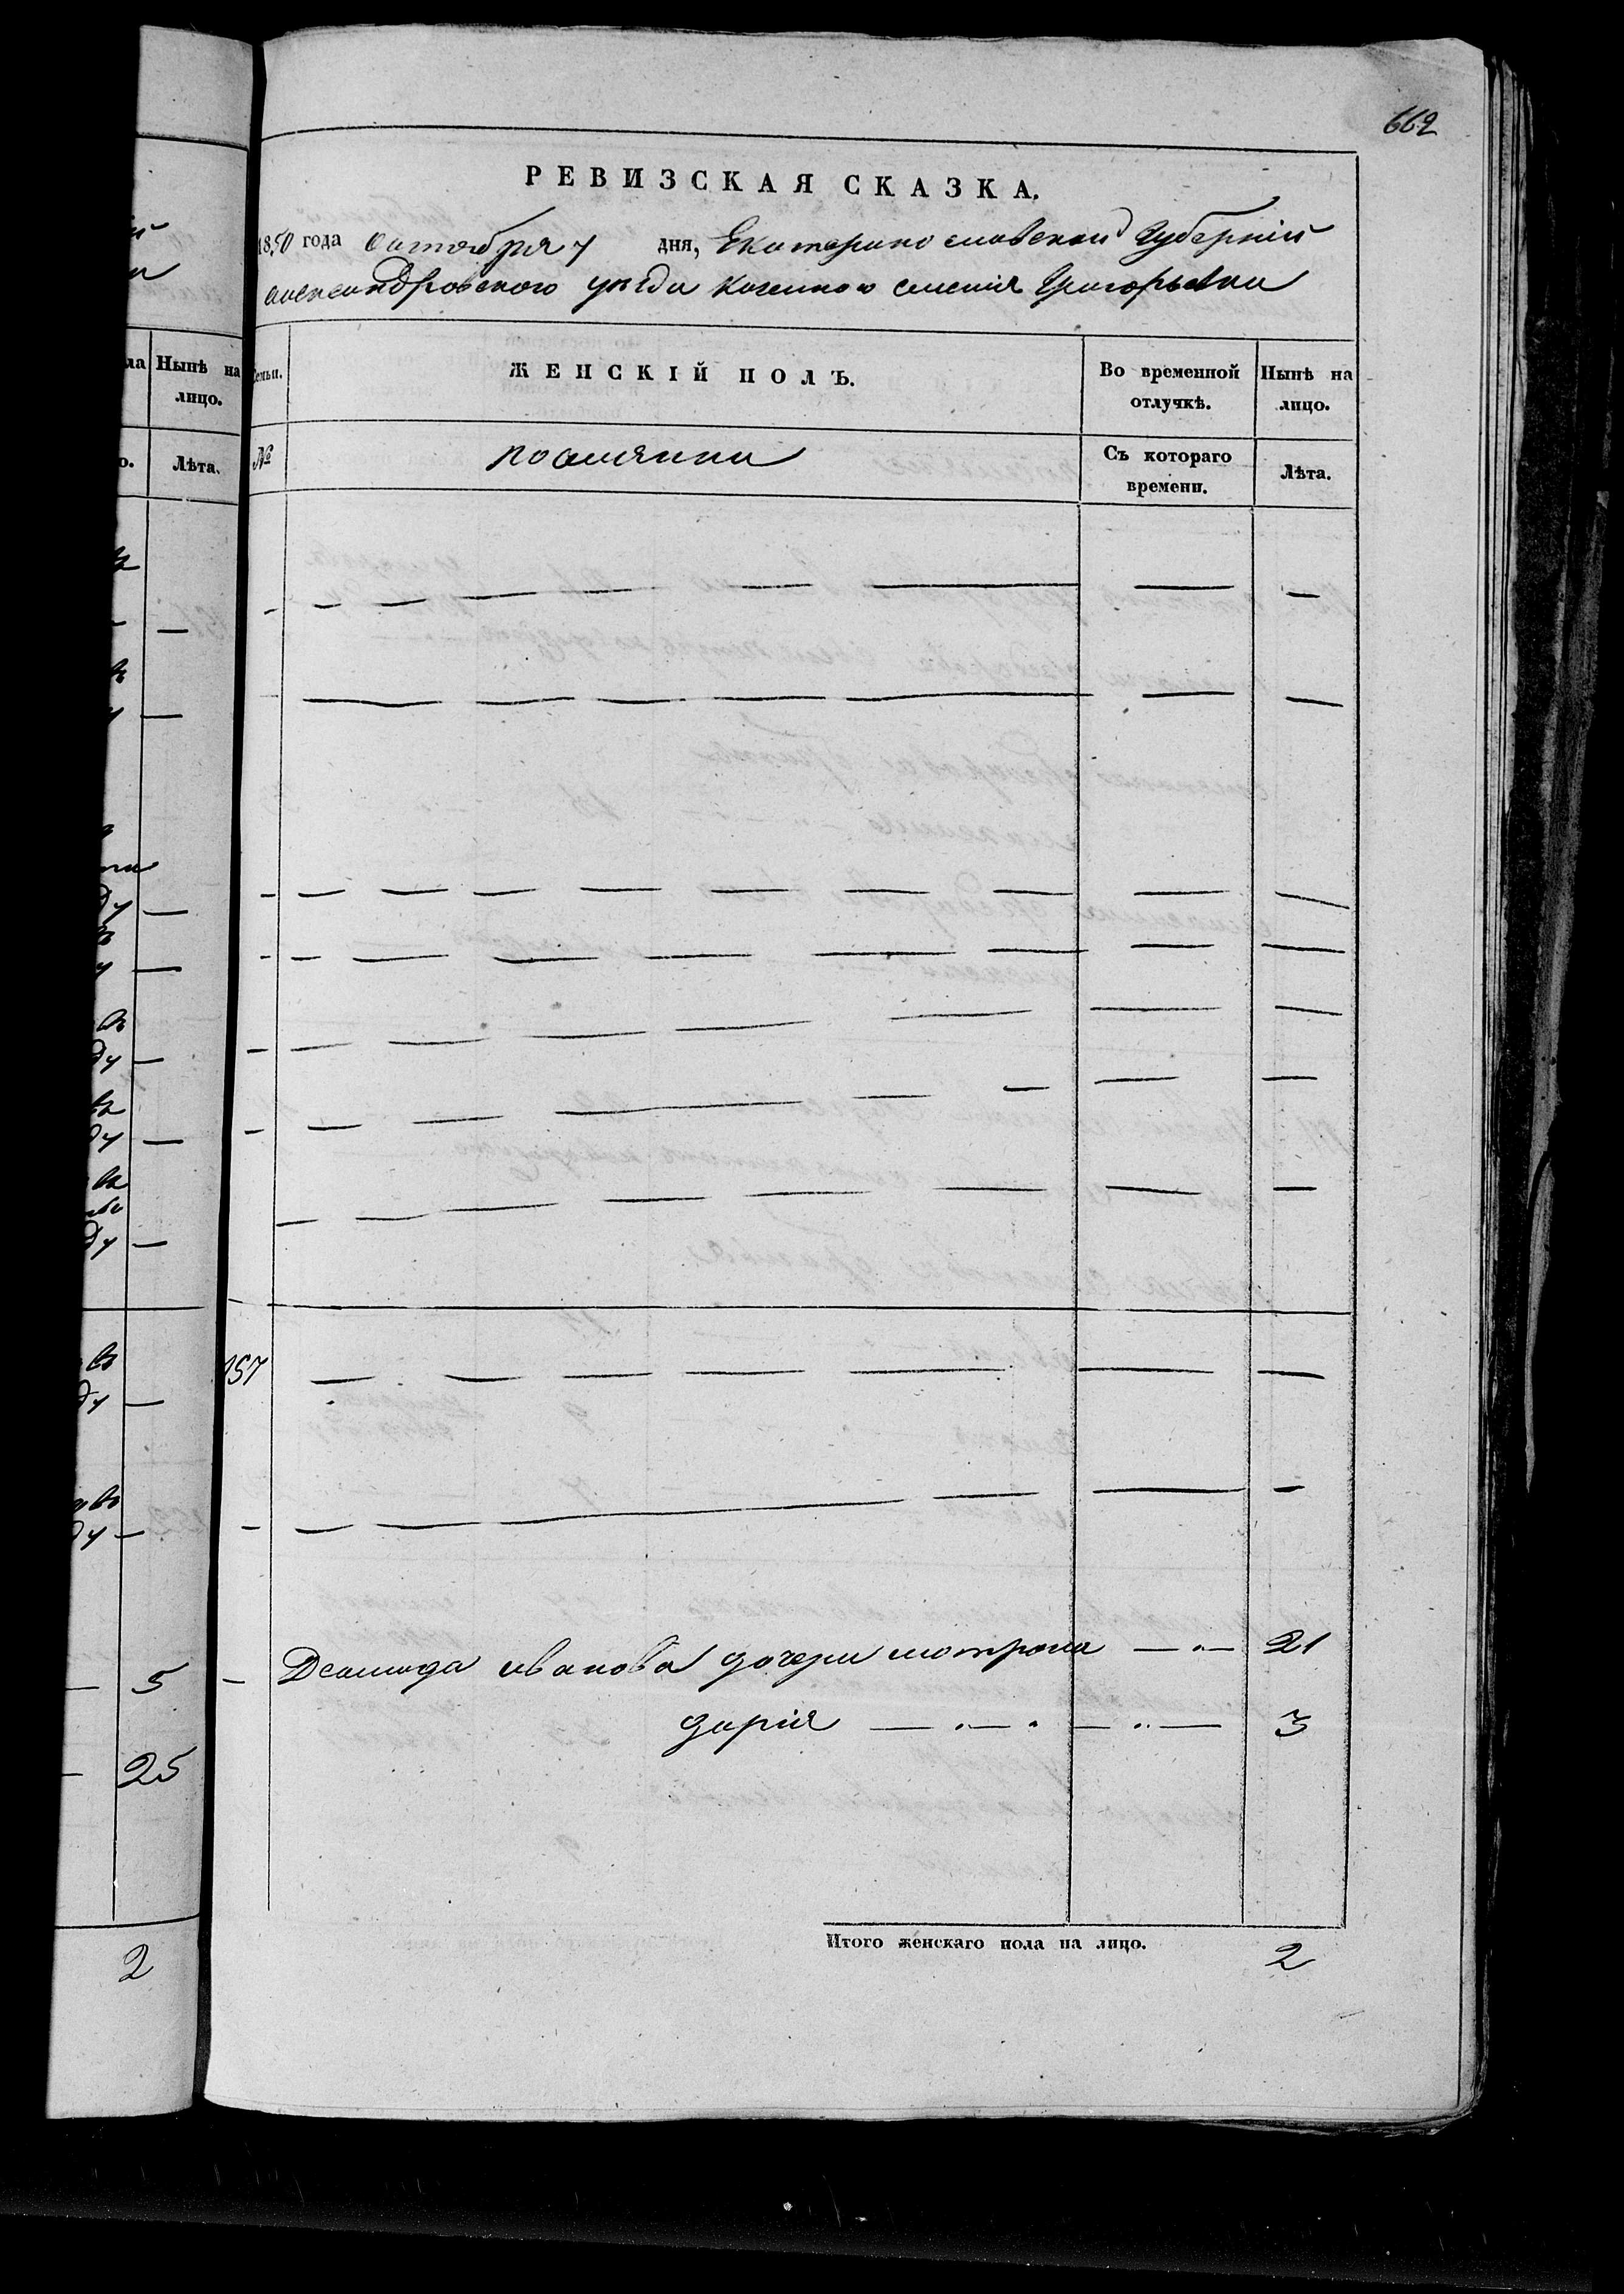 662
РЕВИЗСКАЯ СКАЗКА.
1850 года октября 7 дня, Екатеринославской Губерніи
александровского уѣзда казенного селенія Григорьевки
ла
Нынѣ на лицо.
Лѣта.
Семьи.
ЖЕНСКІЙ ПОЛЪ.
Во временной отлучкѣ.
Нынѣ на лицо.
№
поселянки
Съ котораго времени.
Лѣта.
157
5
25
2
Деомида иванова дочери мотрона — 21
дарія — 3
Итого женскаго пола на лицо. 2